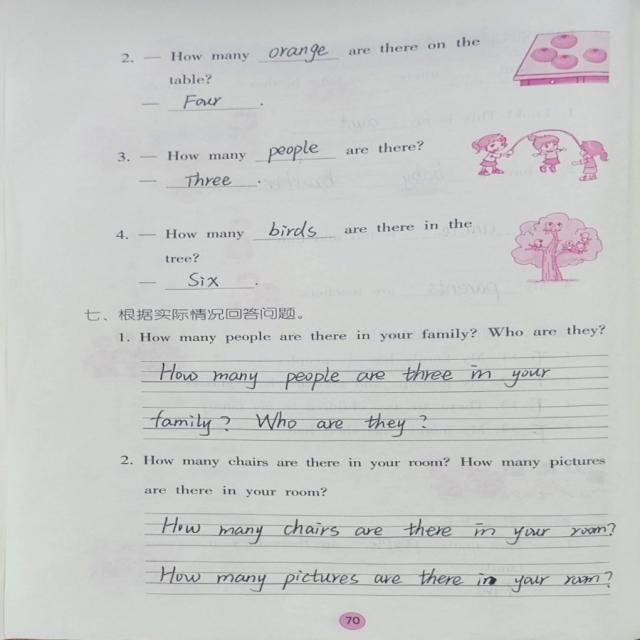 2. — How many orange are there on the
table?
— Four.
3. — How many people are there?
— Three.
4. — How many birds are there in the
tree?
— Six.
七、根据实际情况回答问题。
1. How many people are there in your family? Who are they?
How many people are three in your
family? Who are they?
2. How many chairs are there in your room? How many pictures
are there in your room?
How many chairs are there in your room?
How many pictures are there in your room?
70